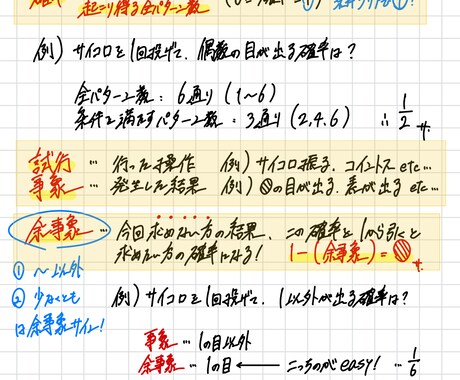 起こり得る全パターン数
例) サイコロを1回投げて、偶数の目が出る確率は?
全パターン数:6通り (1~6)
条件を満たすパターン数:3通り (2,4,6) ∴ 1/2
試行 … 行った操作 例) サイコロ振る、コイントス etc…
事象 … 発生した結果 例) の目が出る、表が出る etc…
余事象 … 今回求めない方の結果、この確率を1から引くと
求めたい方の確率になる! 1-(余事象)=
① ~以外
② 少なくとも
は余事象サイン!
例) サイコロを1回投げて、1以外が出る確率は?
事象 … 1の目以外
余事象 … 1の目 ← こっちのがeasy! … 1/6